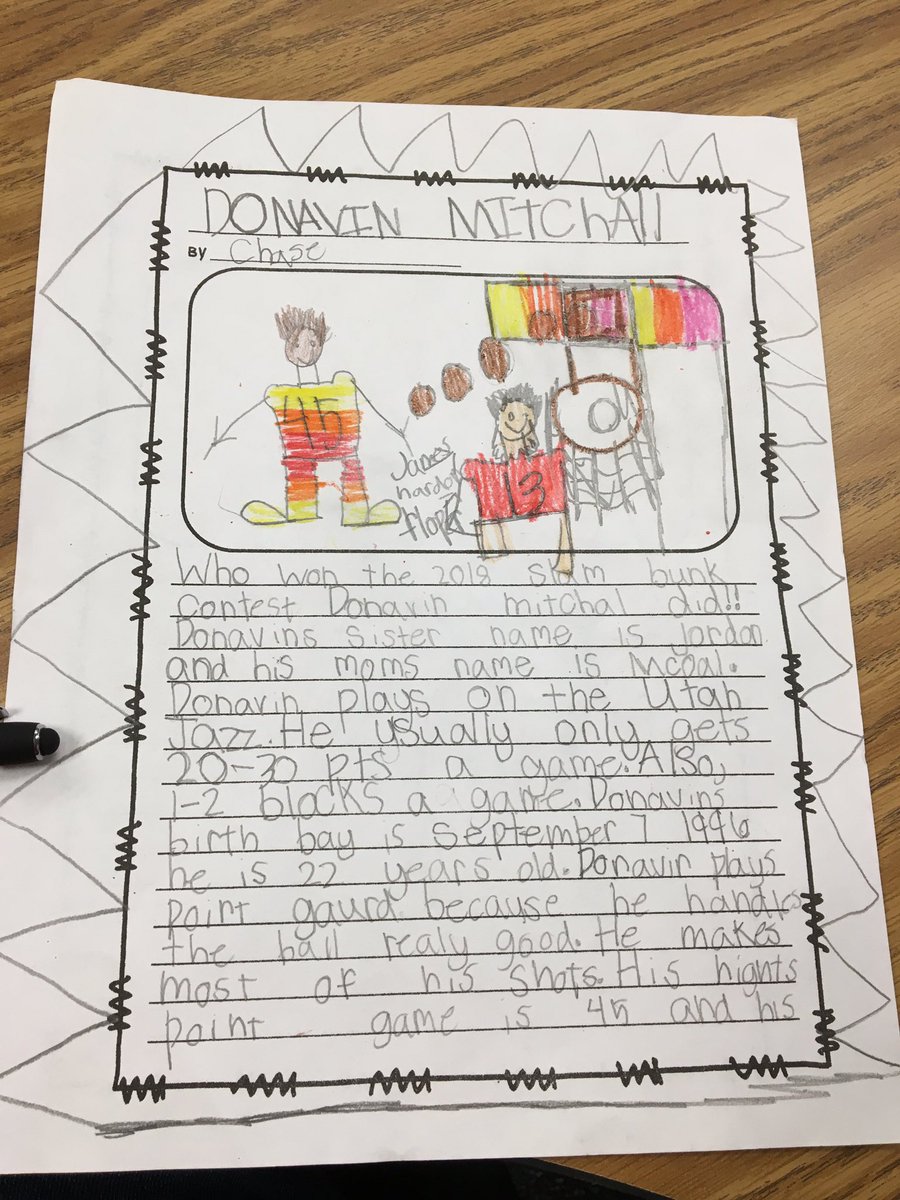 DONAVIN MITChAll
BY Chase
45
James
hardon
flop
13
Who won the 2018 slam bunk
contest Donavin mitchal did!!
Donavins sister name is jordon
and his moms name is Mcoal.
Donavin plays on the Utah
Jazz. He usually only gets
20-30 pts a game. Also,
1-2 blocks a game. Donavins
birth bay is September 7 1996
he is 22 years old. Donavin plays
point gaurd because he handles
the ball realy good. He makes
most of his shots. His hights
point game is 45 and his